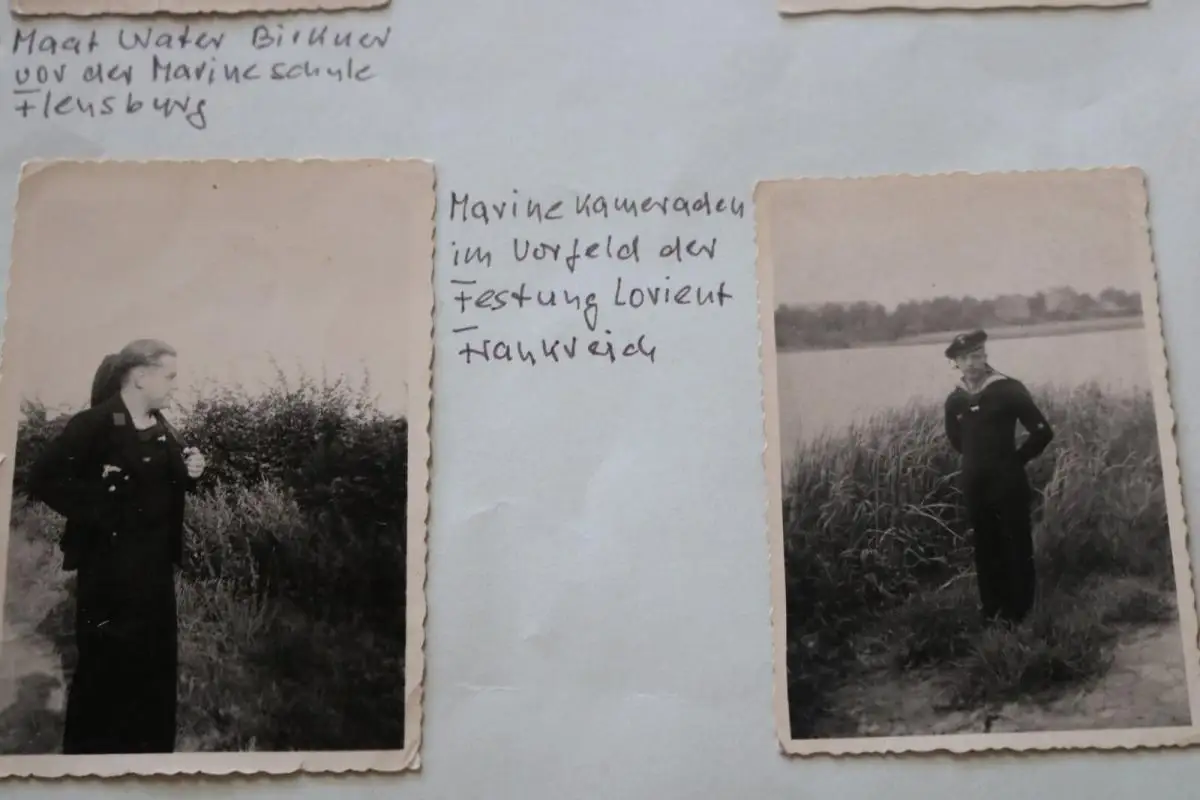 Maat Water Birkner
vor der Marineschule
Flensburg
Marinekameraden
im Vorfeld der
Festung Lorient
Frankreich